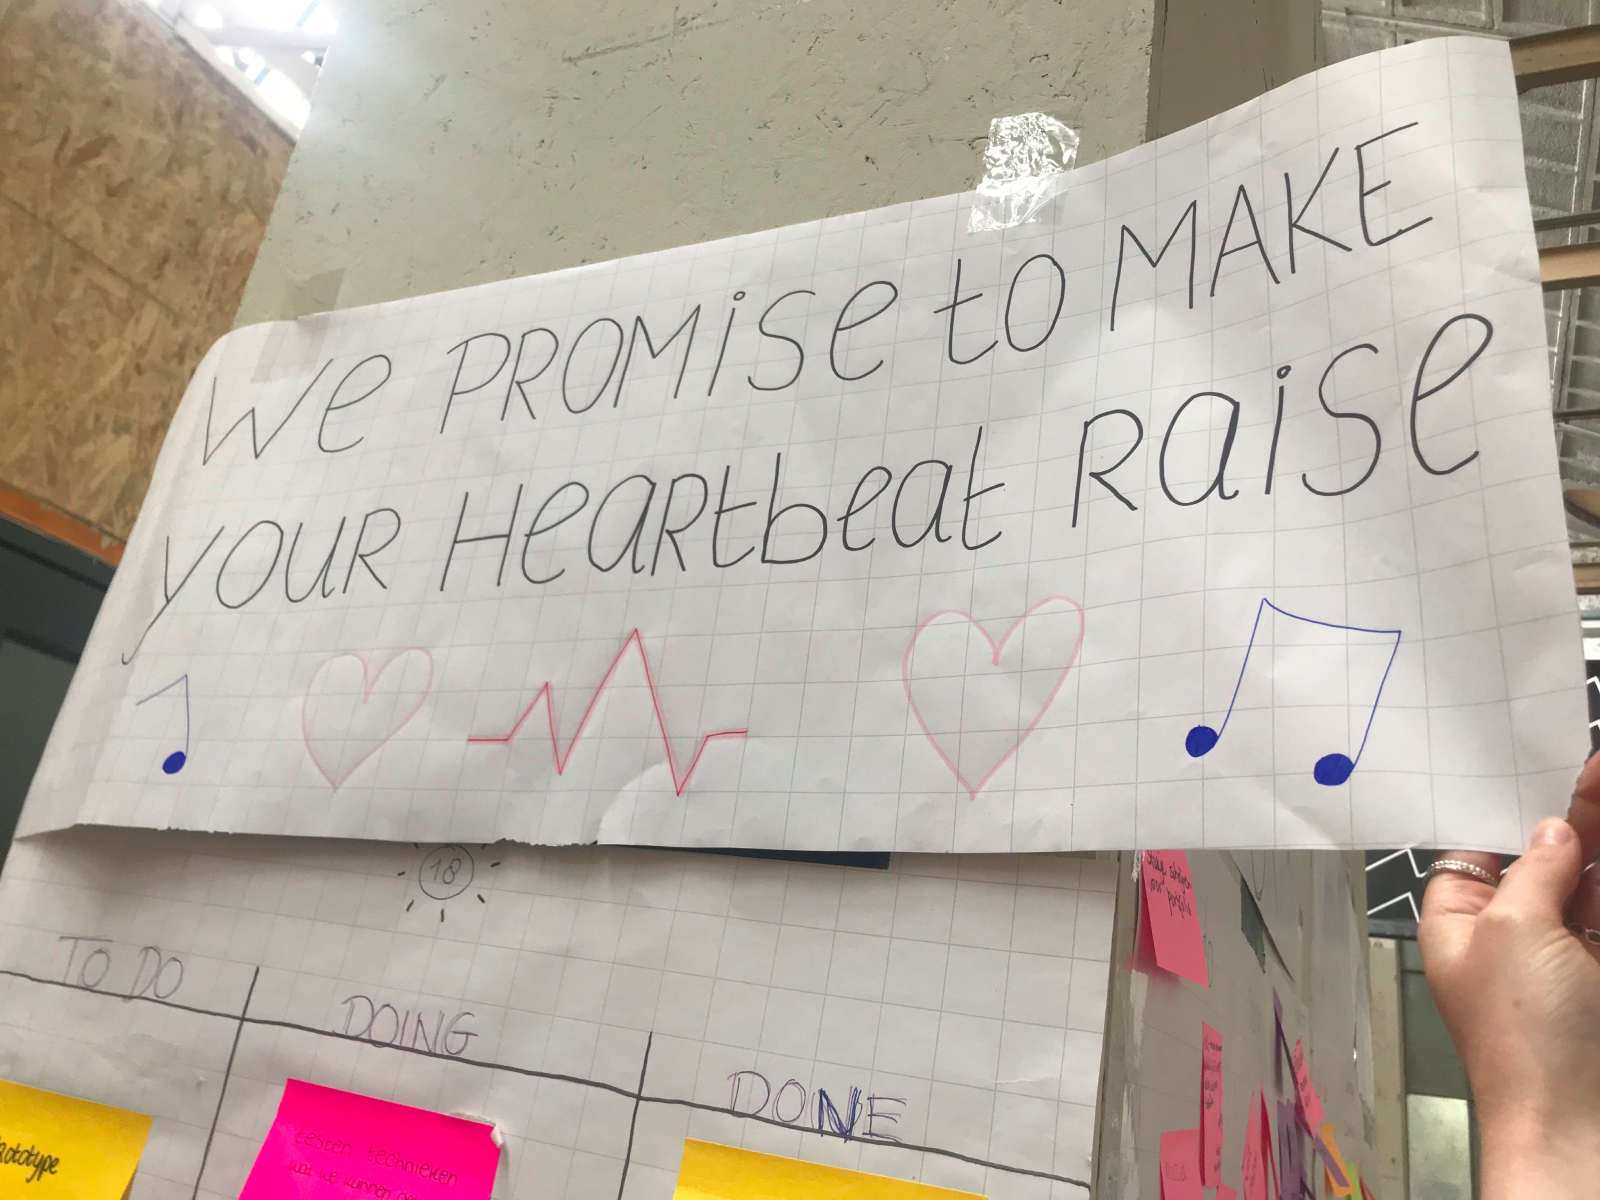 We PROMiSe to MAKE
YOUR HeaRtbeat Raise
18
TO DO
DOING
DONE
testen technieken
wat we kunnen